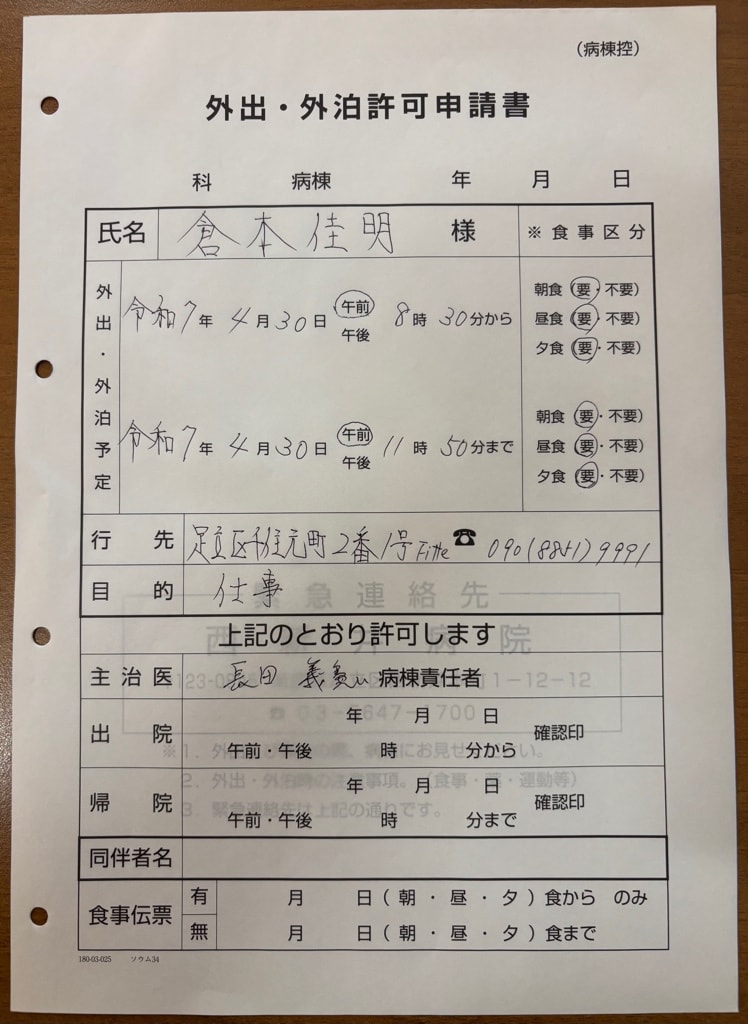 (病棟控)
外出・外泊許可申請書
科 病棟 年 月 日
氏名 倉本佳明 様 ※食事区分
外出・外泊予定
令和7年 4月30日 午前 8時 30分から
午後
朝食(要・不要)
昼食(要・不要)
夕食(要・不要)
令和7年 4月30日 午前 11時 50分まで
午後
朝食(要・不要)
昼食(要・不要)
夕食(要・不要)
行先 足立区千住元町2番1号 ☎ 090(8851)9991
目的 仕事
緊急連絡先
上記のとおり許可します
主治医 長田 病棟責任者
1-12-12
出院 年 月 日 確認印
午前・午後 時 分から
帰院 年 月 日 確認印
午前・午後 時 分まで
2. 外出・外泊時の注意事項。(食事・薬・運動等)
3. 緊急連絡先は上記の通りです。
同伴者名
食事伝票 有 月 日(朝・昼・夕)食から のみ
無 月 日(朝・昼・夕)食まで
180-03-025 ソウム34